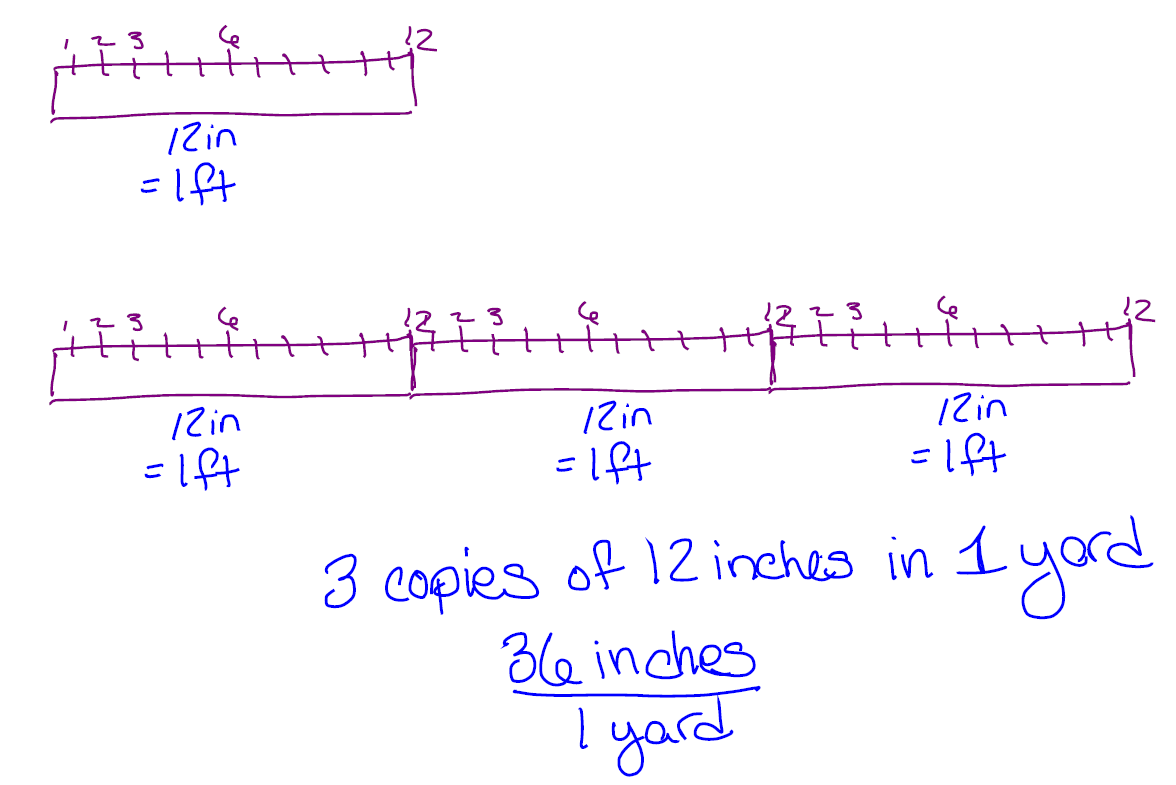 1 2 3 6 12
12in
=1ft
1 2 3 6 12 1 2 3 6 12 1 2 3 6 12
12in 12in 12in
=1ft =1ft =1ft
3 copies of 12 inches in 1 yard
36 inches
1 yard